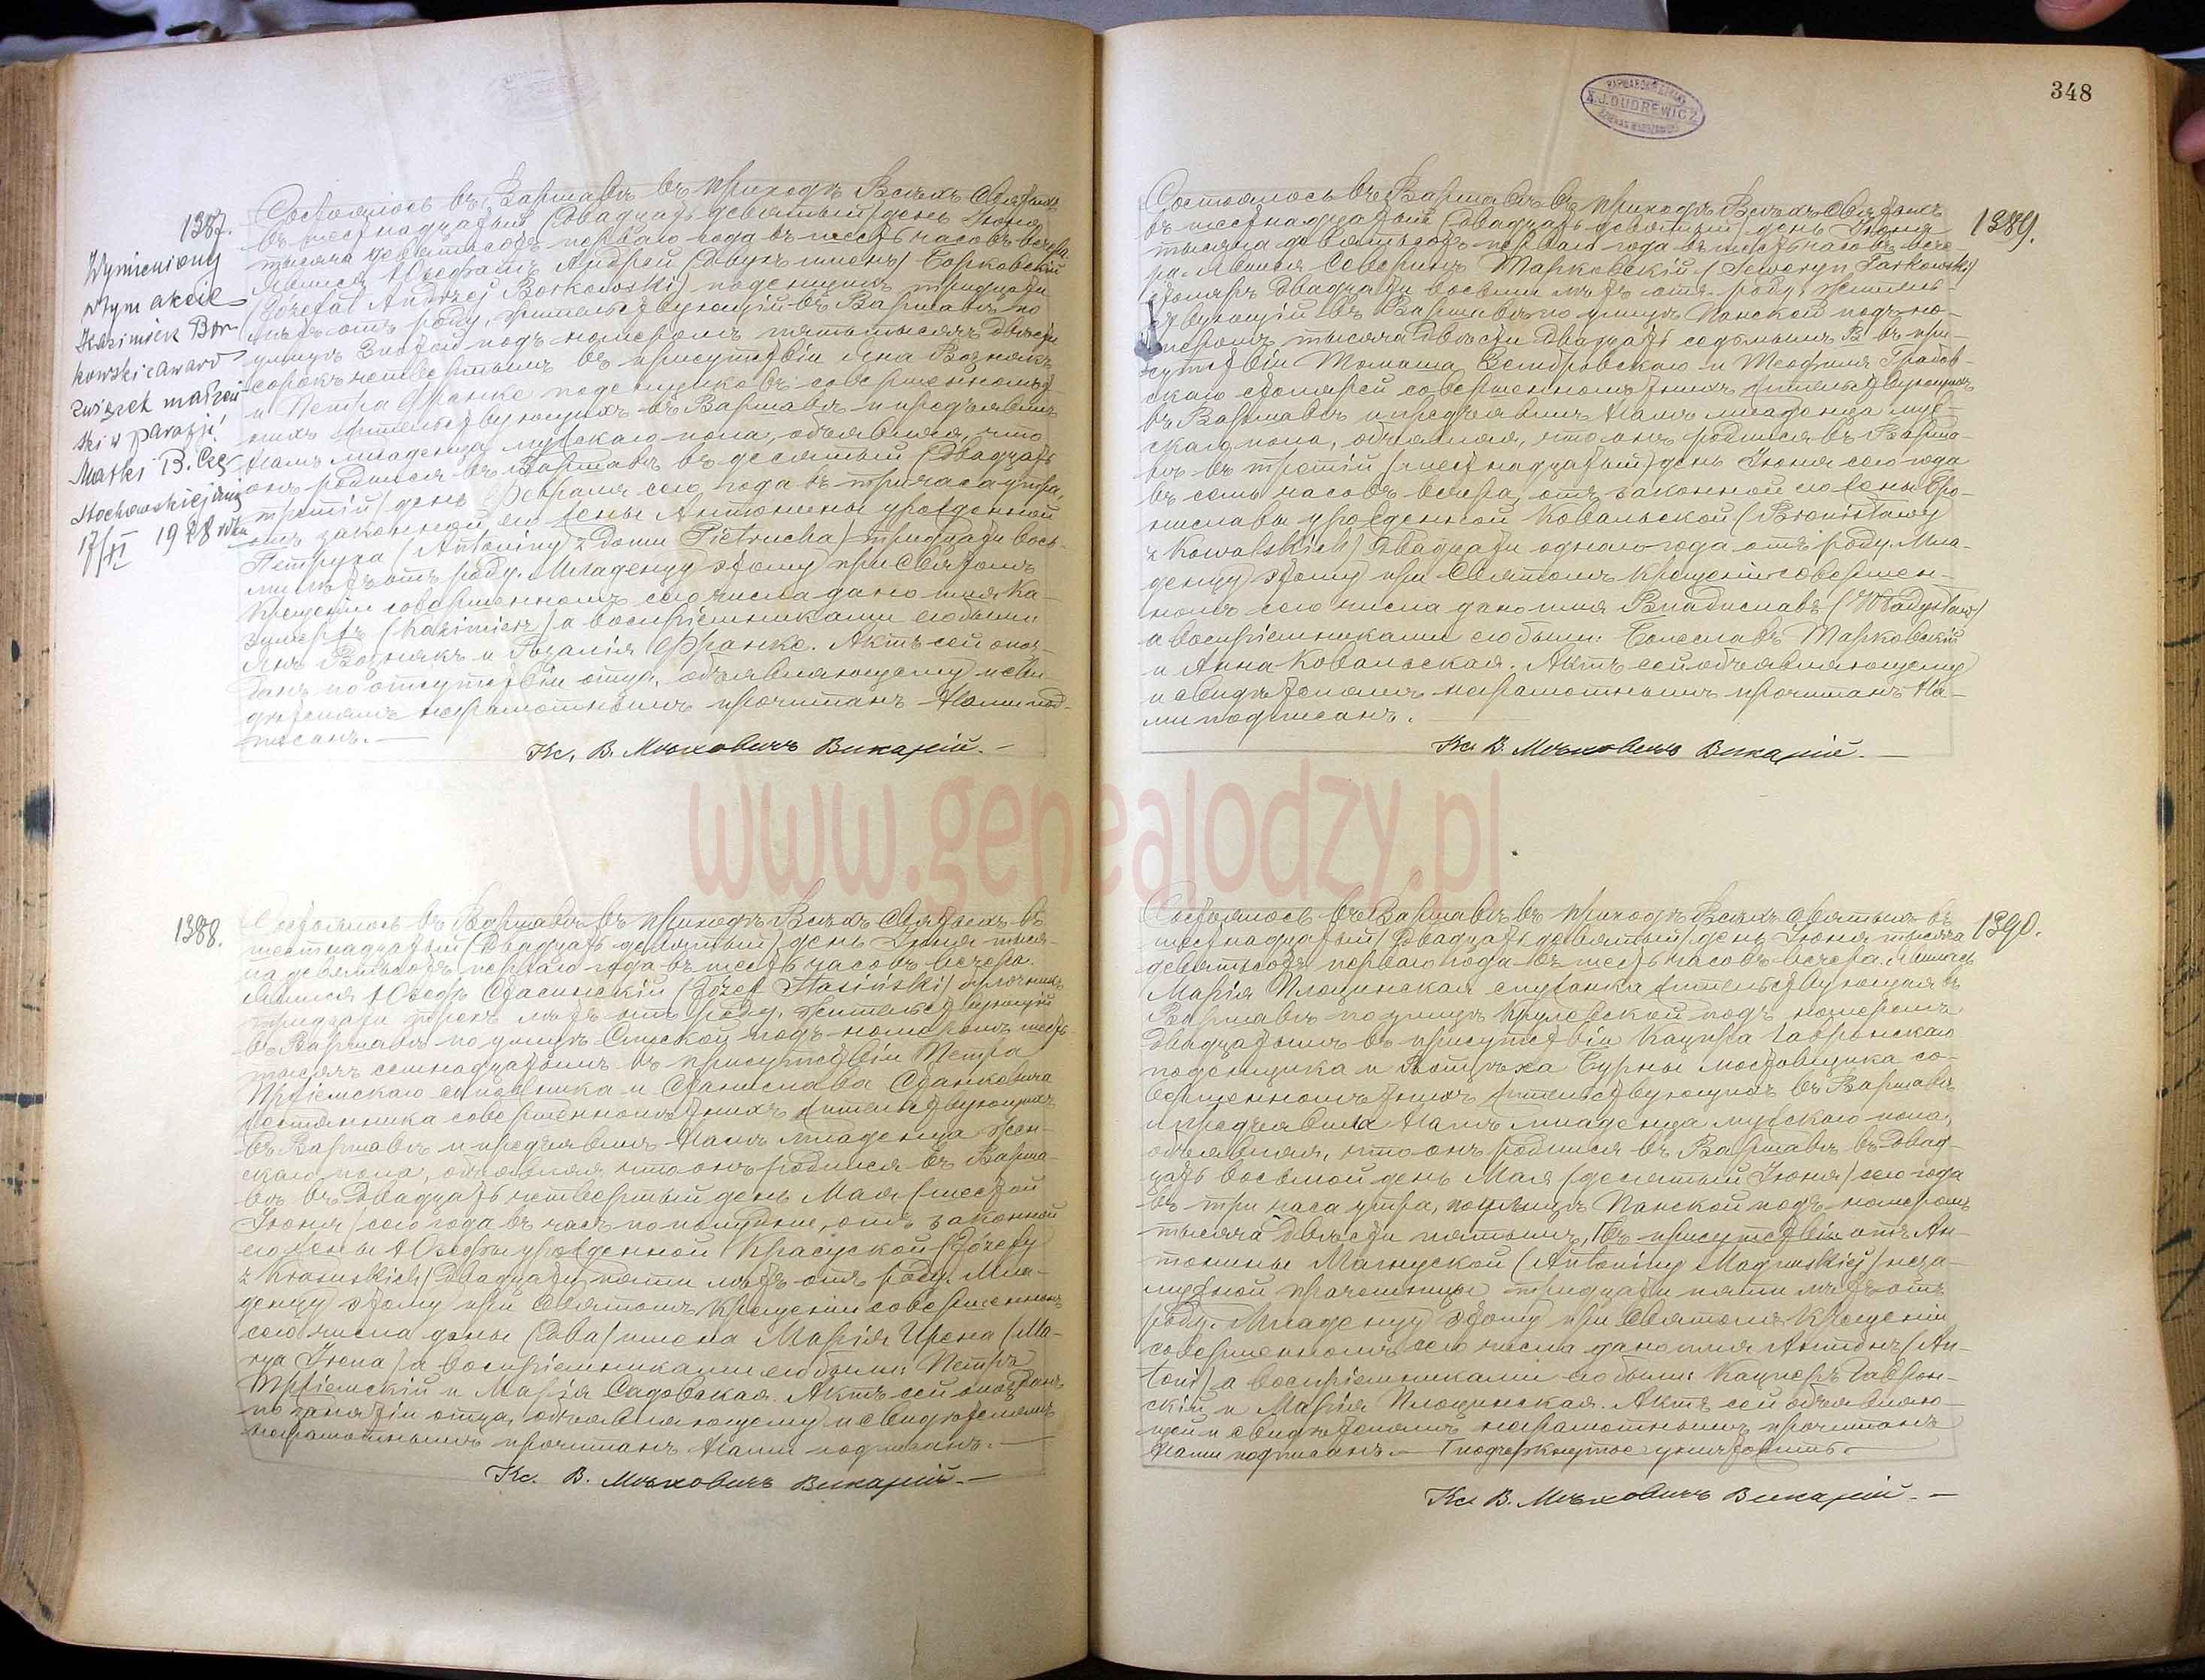 1387.
Wymieniony
w tym akcie
Kazimierz Bor-
kowski zawarł
związek małżeń
ski w parafji
Matki B. Czę
stochowskiej dnia
17/XI 1928 roku
Состоялось въ Варшавѣ въ приходѣ Всѣхъ Святыхъ
въ шестнадцатый (двадцать девятый) день Іюня
тысяча девятьсотъ перваго года въ шесть часовъ вечера.
Явился Юзефатъ Андрей (двухъ именъ) Борковскій
(Józefat Andrzej Borkowski) поденщикъ тридцати
лѣтъ отъ роду, жительствующій въ Варшавѣ по
улицѣ Златой подъ номеромъ пять тысячъ двѣсти
сорокъ четвертымъ въ присутствіи Яна Возняка
и Петра Франке поденщиковъ совершеннолѣт
нихъ жительствующихъ въ Варшавѣ и предъявилъ
Намъ младенца мужскаго пола, объявляя, что
онъ родился въ Варшавѣ въ десятый (двадцать
третій) день Февраля сего года въ три часа утра,
отъ законной его жены Антонины урожденной
Петруха (Antoniny z domu Pietrucha) тридцати вось-
ми лѣтъ отъ роду. Младенцу этому при Святомъ
Крещеніи совершенномъ сего числа дано имя Ка-
зимержъ (Kazimierz) а воспріемниками его были:
Янъ Вознякъ и Розалія Франке. Актъ сей опоз-
данъ по отсутствію отца, объявляющему и сви-
дѣтелямъ неграмотнымъ прочитанъ Нами под-
писанъ.—
Кс. В. Мѣховичъ Викарій.—
1388.
Состоялось въ Варшавѣ въ приходѣ Всѣхъ Святыхъ въ
шестнадцатый (двадцать девятый) день Іюня тыся-
ча девятьсотъ перваго года въ шесть часовъ вечера.
Явился Юзефъ Стасинскій (Józef Stasiński)
тридцати трехъ лѣтъ отъ роду, жительствующій
въ Варшавѣ по улицѣ Слиской подъ номеромъ шесть
тысячъ семнадцатымъ въ присутствіи Петра
и Станислава Станкевича
совершеннолѣтнихъ жительствующихъ
въ Варшавѣ и предъявилъ Намъ младенца жен-
скаго пола, объявляя что онъ родился въ Варша-
вѣ въ двадцать четвертый день Мая (шестой
Іюня) сего года въ часъ пополудни, отъ законной
его жены Юзефы урожденной Красуской (Józefy
z Krasuskich) двадцати пяти лѣтъ отъ роду. Мла-
денцу этому при Святомъ Крещеніи совершенномъ
сего числа даны (два) имена Марія Ирена (Ma-
rya Irena) а воспріемниками его были: Петръ
и Марія Садовская. Актъ сей опозданъ
по занятіи отца, объявляющему и свидѣтелямъ
неграмотнымъ прочитанъ Нами подписанъ.—
Кс. В. Мѣховичъ Викарій.—
348
X.J. DUDREWICZ
1389.
Состоялось въ Варшавѣ въ приходѣ Всѣхъ Святыхъ
въ шестнадцатый (двадцать девятый) день Іюня
тысяча девятьсотъ перваго года въ шесть часовъ вече-
ра. Явился Северинъ Тарковскій (Seweryn Tarkowski)
столяръ двадцати восьми лѣтъ отъ роду, житель-
ствующій въ Варшавѣ по улицѣ Панской подъ но-
меромъ тысяча двѣсти двадцать седьмымъ В въ при-
сутствіи Томаша Зембровскаго и Теофиля Грабов-
скаго столярей совершеннолѣтнихъ жительствующихъ
въ Варшавѣ и предъявилъ Намъ младенца муж-
скаго пола, объявляя, что онъ родился въ Варша-
вѣ въ третій (шестнадцатый) день Іюня сего года
въ семь часовъ вечера, отъ законной его жены Бро-
ниславы урожденной Ковальской (Bronisławy
z Kowalskich) двадцати одного года отъ роду. Мла-
денцу этому при Святомъ Крещеніи совершен-
номъ сего числа дано имя Владиславъ (Władysław)
а воспріемниками его были: Болеславъ Тарковскій
и Анна Ковальская. Актъ сей объявляющему
и свидѣтелямъ неграмотнымъ прочитанъ На-
ми подписанъ.
Кс. В. Мѣховичъ Викарій.—
1390.
Состоялось въ Варшавѣ въ приходѣ Всѣхъ Святыхъ въ
шестнадцатый (двадцать девятый) день Іюня тысяча
девятьсотъ перваго года въ шесть часовъ вечера. Явилась
Марія Плоцинская служанка жительствующая въ
Варшавѣ по улицѣ Крулевской подъ номеромъ
двадцатымъ въ присутствіи Кацпра Гавронскаго
поденщика и Войцѣха Бурны мостовщика со-
вершеннолѣтнихъ жительствующихъ въ Варшавѣ
и предъявила Намъ младенца мужскаго пола,
объявляя, что онъ родился въ Варшавѣ въ двад-
цать восьмой день Мая (десятый Іюня) сего года
въ три часа утра, по улицѣ Панской подъ номеромъ
тысяча двѣсти пятымъ, въ присутствіи отъ Ан-
тонины Магнуской (Antoniny Magnuskiej) неза-
мужной прачешницы тридцати пяти лѣтъ отъ
роду. Младенцу этому при Святомъ Крещеніи
совершенномъ сего числа дано имя Антонъ (An-
toni) а воспріемниками его были: Кацперъ Гаврон-
скій и Марія Плоцинская. Актъ сей объявляю-
щей и свидѣтелямъ неграмотнымъ прочитанъ
Нами подписанъ.— подчеркнутое уничтожить.—
Кс. В. Мѣховичъ Викарій.—
www.genealodzy.pl